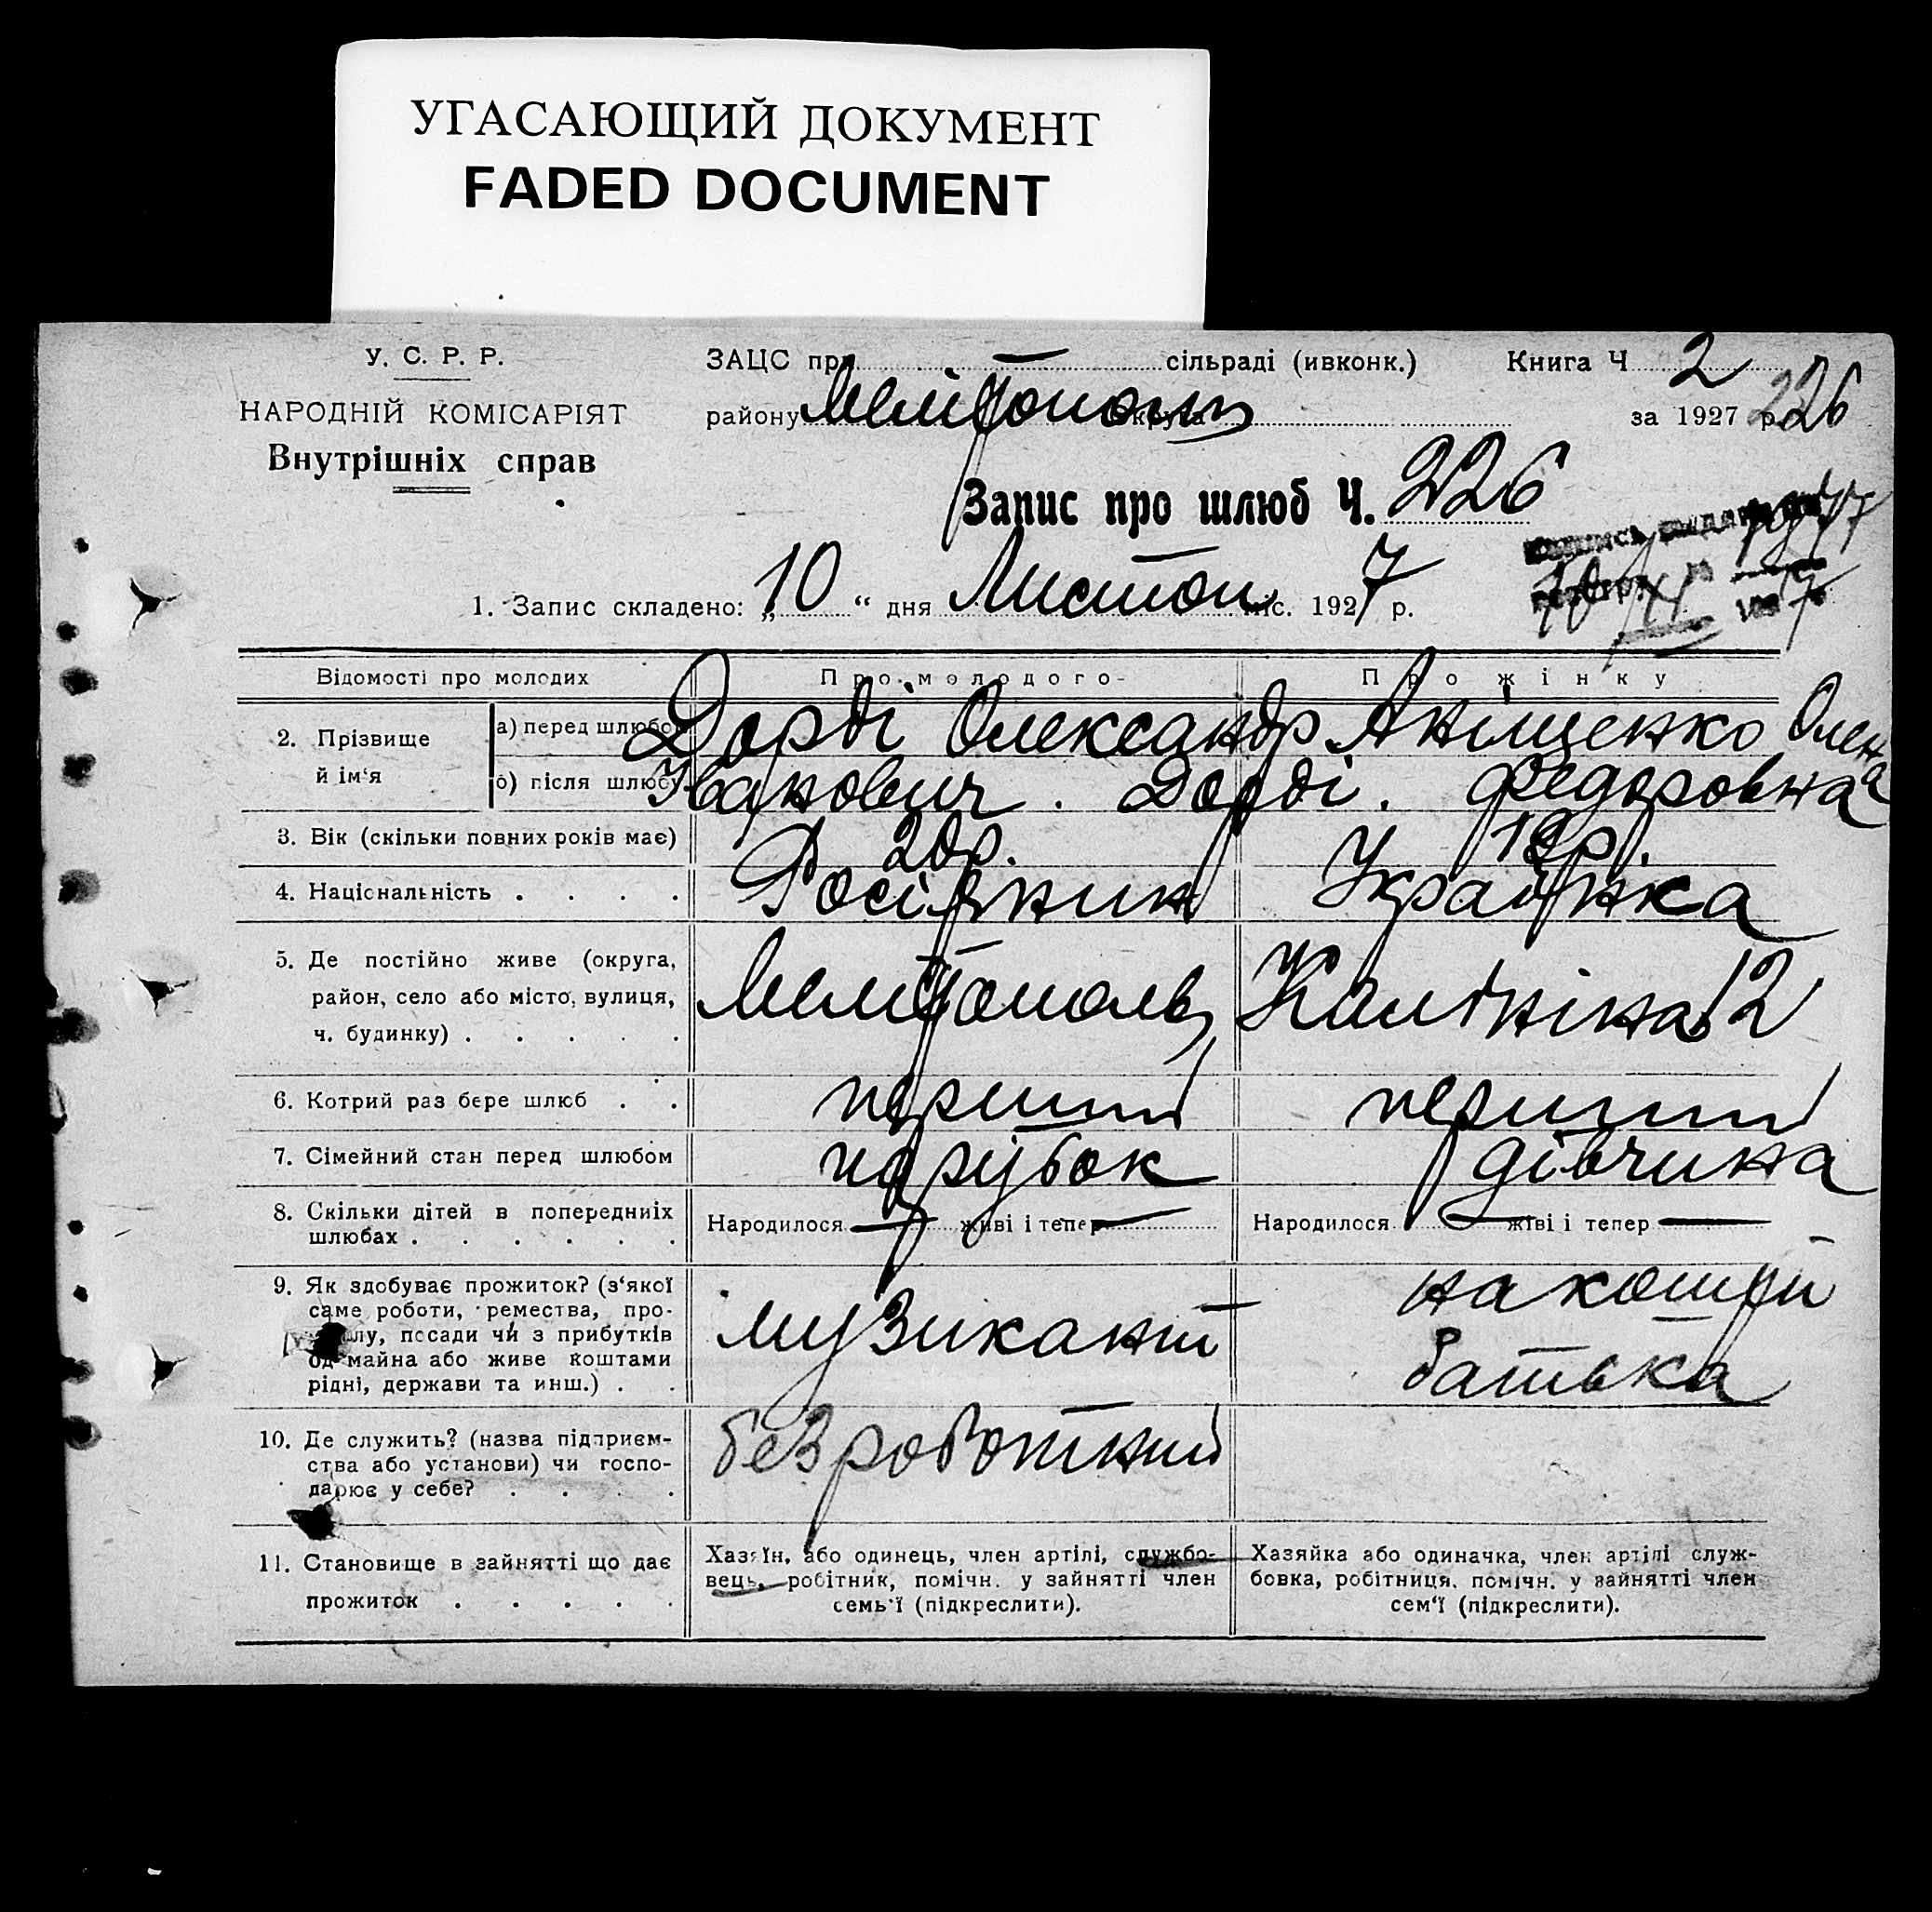 УГАСАЮЩИЙ ДОКУМЕНТ
FADED DOCUMENT
У. С. Р. Р.
НАРОДНІЙ КОМІСАРІЯТ
Внутрішніх справ
ЗАЦС при — сільраді (ивконк.) Книга Ч 2
району Мелітополь округа за 1927 р. 226
Запис про шлюб Ч. 226
1. Запис складено: „10“ дня Листоп міс. 1927 р.
Відомості про молодих Про молодого Про жінку
2. Прізвище й ім‘я
а) перед шлюбом Дорді Олександр Аніщенко Олена
б) після шлюбу Іванович. Дорді. Федоровна
3. Вік (скільки повних років має) 20р. 19р.
4. Національність . . . . Росіянин Українка
5. Де постійно живе (округа,
район, село або місто, вулиця,
ч. будинку) . . . . . Мелітополь 12
6. Котрий раз бере шлюб . . перший перший
7. Сімейний стан перед шлюбом парубок дівчина
8. Скільки дітей в попередниіх
шлюбах . . . . . . Народилося — живі і тепер — Народилося — живі і тепер —
9. Як здобуває прожиток? (з‘якої
саме роботи, ремества, про-
мислу, посади чи з прибутків
од майна або живе коштами
рідні, держави та инш.) . .
музикант
на кошти
батька
10. Де служить? (назва підприєм-
ства або установи) чи госпо-
дарює у себе? . . . .
безроботний
11. Становище в зайнятті що дає
прожиток . . . . .
Хазяїн, або одинець, член артілі, службо-
вець, робітник, помічн. у зайнятті член
семь‘ї (підкреслити).
Хазяйка або одиначка, член артілі служ-
бовка, робітниця, помічн. у зайнятті член
сем‘ї (підкреслити).